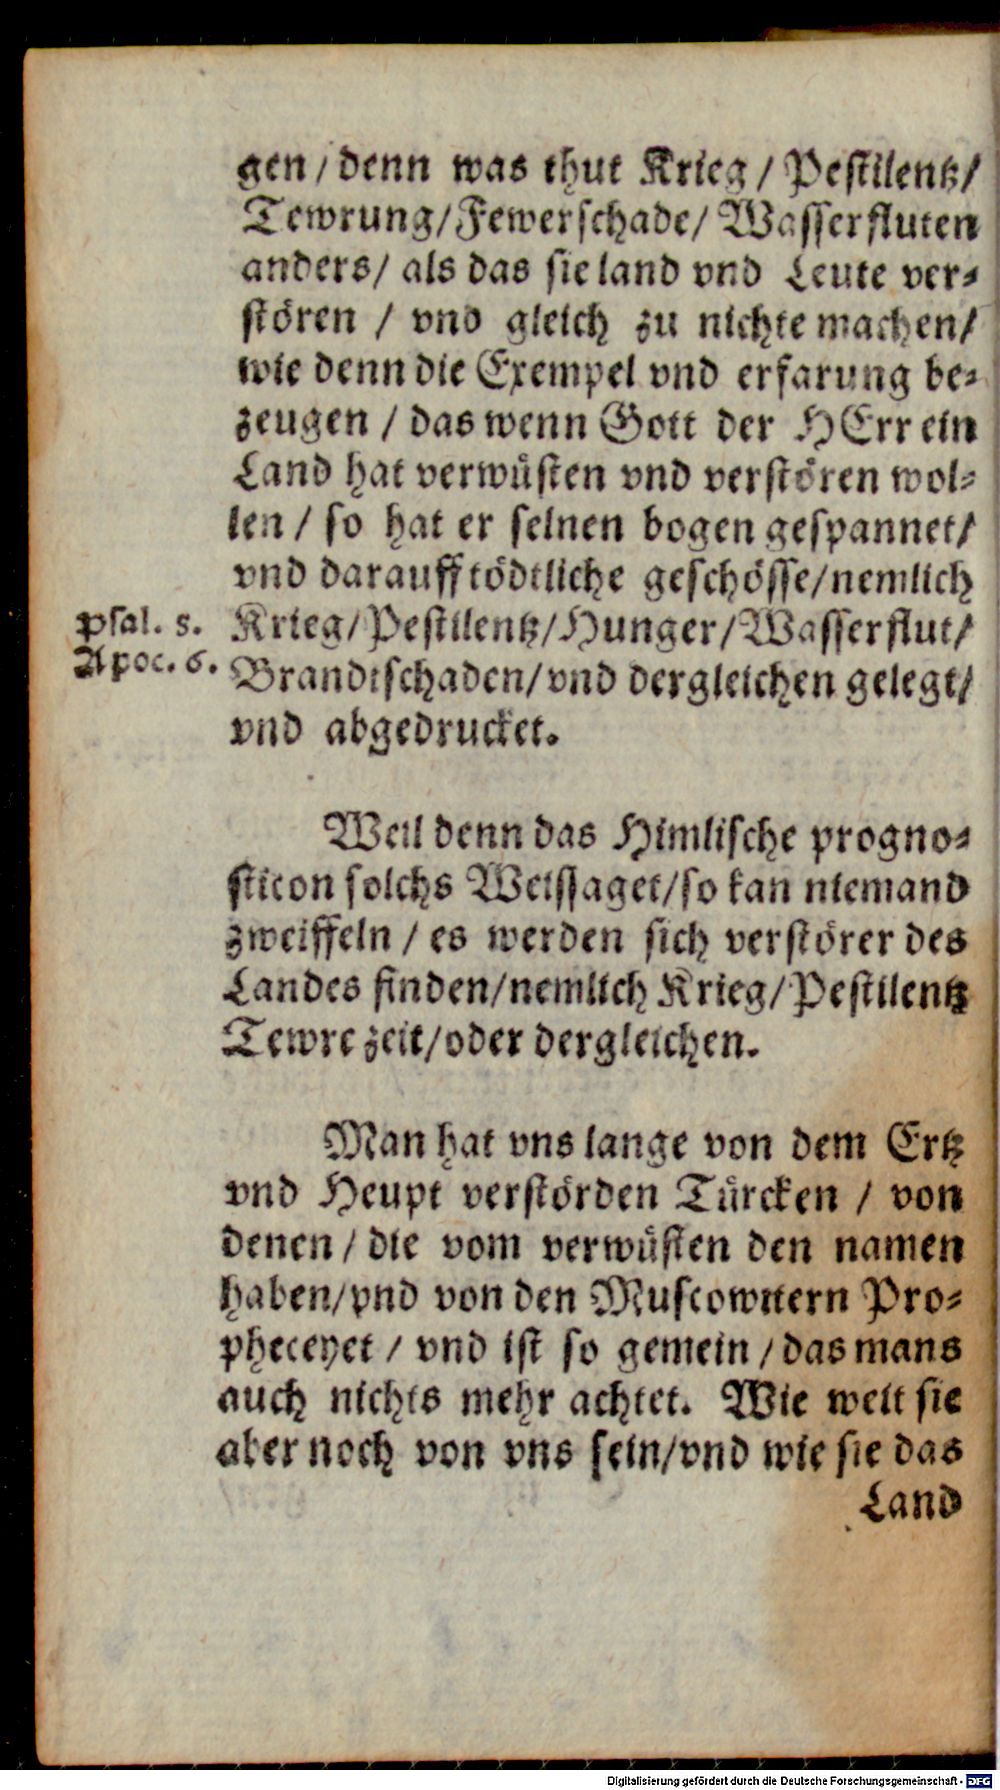 gen / denn was thut Krieg / Pestilentz/
Tewrung/Fewerschade/ Wasserfluten
anders/ als das sie land vnd Leute ver⸗
stören / vnd gleich zu nichte machen/
wie denn die Exempel vnd erfarung be⸗
zeugen / das wenn Gott der HErr ein
Land hat verwüsten vnd verstören wol⸗
len / so hat er seinen bogen gespannet/
vnd darauff tödtliche geschösse/nemlich
Psal. s.
Apoc. 6.
Krieg/Pestilentz/Hunger/Wasserflut/
Brandtschaden/vnd dergleichen gelegt/
vnd abgedrucket.
Weil denn das Himlische progno⸗
sticon solchs Weissaget/so kan niemand
zweiffeln / es werden sich verstörer des
Landes finden/nemlich Krieg/Pestilentz
Tewre zeit/oder dergleichen.
Man hat vns lange von dem Ertz
vnd Heupt verstörden Türcken / von
denen / die vom verwüsten den namen
haben/vnd von den Muscowitern Pro⸗
pheceyet / vnd ist so gemein / das mans
auch nichts mehr achtet. Wie weit sie
aber noch von vns sein/vnd wie sie das
Land
Digitalisierung gefördert durch die Deutsche Forschungsgemeinschaft - DFG